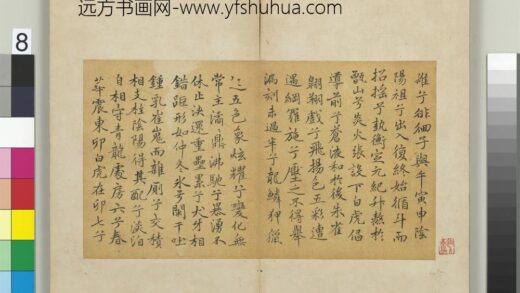 8
远方书画网-www.yfshuhua.com
雄兮徘徊子與午寅申陰
陽祖兮出入復終始循斗而
招搖兮執衡定元紀升熬於
甑山兮炎火張設下白虎倡
導前兮蒼液和於後朱雀
翱翔戲兮飛揚色五彩遭
遇網羅施兮壓之不得舉
漏刻未過半兮龍鱗狎獵
起五色象炫耀兮變化無
常主潏鼎沸馳兮暴湧不
休止還重疊累兮犬牙相
錯距形如仲冬冰兮闌干吐
鍾乳崔嵬而雜廁兮交積
相支柱陰陽得其配兮淡泊
自相守青龍處房六兮春
華震東卯白虎在卯七兮